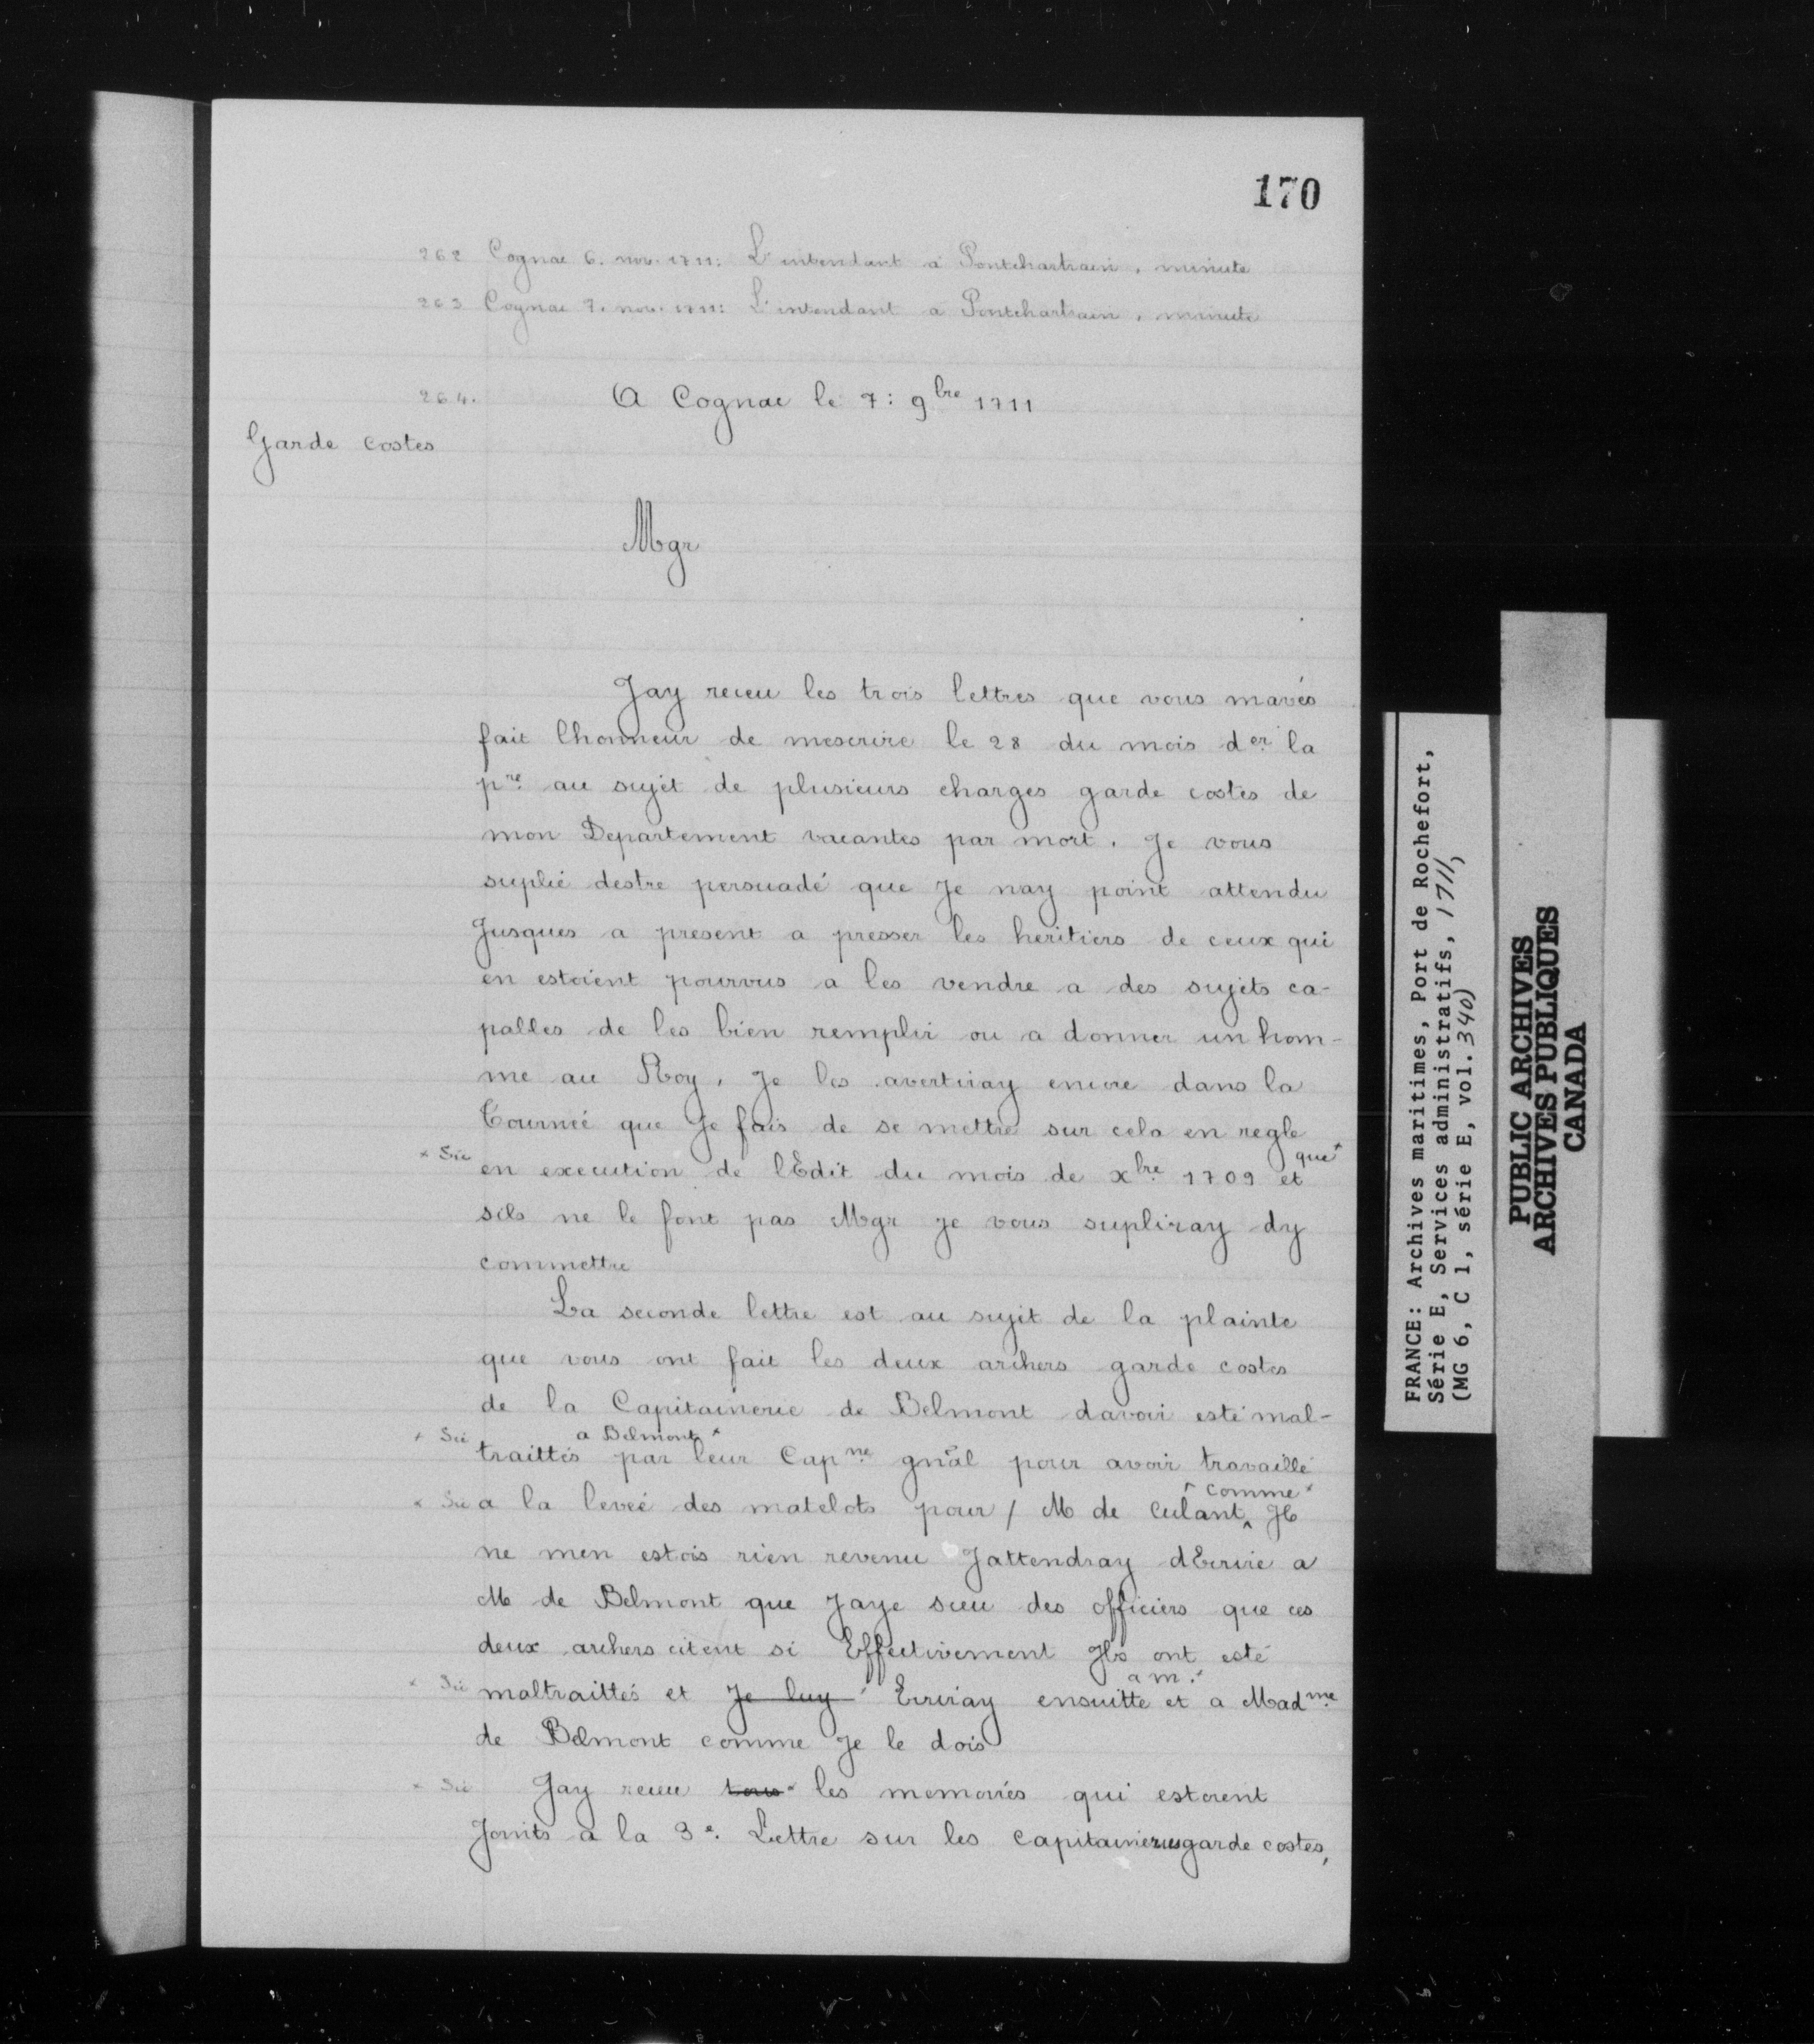 170
262 Cognac 6. nov. 1711: L'intendant a Pontchartrain, minute
263 Cognac 7. nov. 1711: L'intendant a Pontchartrain, minute
264. A Cognac le 7: 9bre 1711
Garde costes
Mgr
Jay receu les trois lettres que vous mavés
fait lhonneur de mescrire le 28 du mois der la
pre au sujet de plusieurs charges garde costes de
mon Departement vacantes par mort. Je vous
suplie destre persuadé que Je nay point attendu
Jusques a present a presser les heritiers de ceux qui
en estoient pourvus a les vendre a des sujets ca-
palles de les bien remplir ou a donner un hom-
me au Roy. Je les avertiray encore dans la
Tournée que Je fais de se mettre sur cela en regle
que*
* Sic en execution de lEdit du mois de xbre 1709 et
sils ne le font pas Mgr je vous supliray dy
commettre
La seconde lettre est au sujet de la plainte
que vous ont fait les deux archers garde costes
de la Capitainerie de Belmont davoir esté mal-
a Belmont*
* Sic traittés par leur Capne gnãl pour avoir travaillé
comme*
* Sic a la levée des matelots pour / M de Culant, Il
ne men estois rien revenu Jattendray dEcrire a
M de Belmont que Jaye sceu des officiers que ces
deux archers citent si Effectivement Ils ont esté
a m.*
* Sic maltraittés et Je luy Ecriray ensuitte et a Madme
de Belmont comme Je le dois
* Sic Jay receu tous* les memoires qui estoient
Joints a la 3e. Lettre sur les capitaineries garde costes,
FRANCE: Archives maritimes, Port de Rochefort,
Série E, Services administratifs, 1711,
(MG 6, C 1, série E, vol. 340)
PUBLIC ARCHIVES
ARCHIVES PUBLIQUES
CANADA